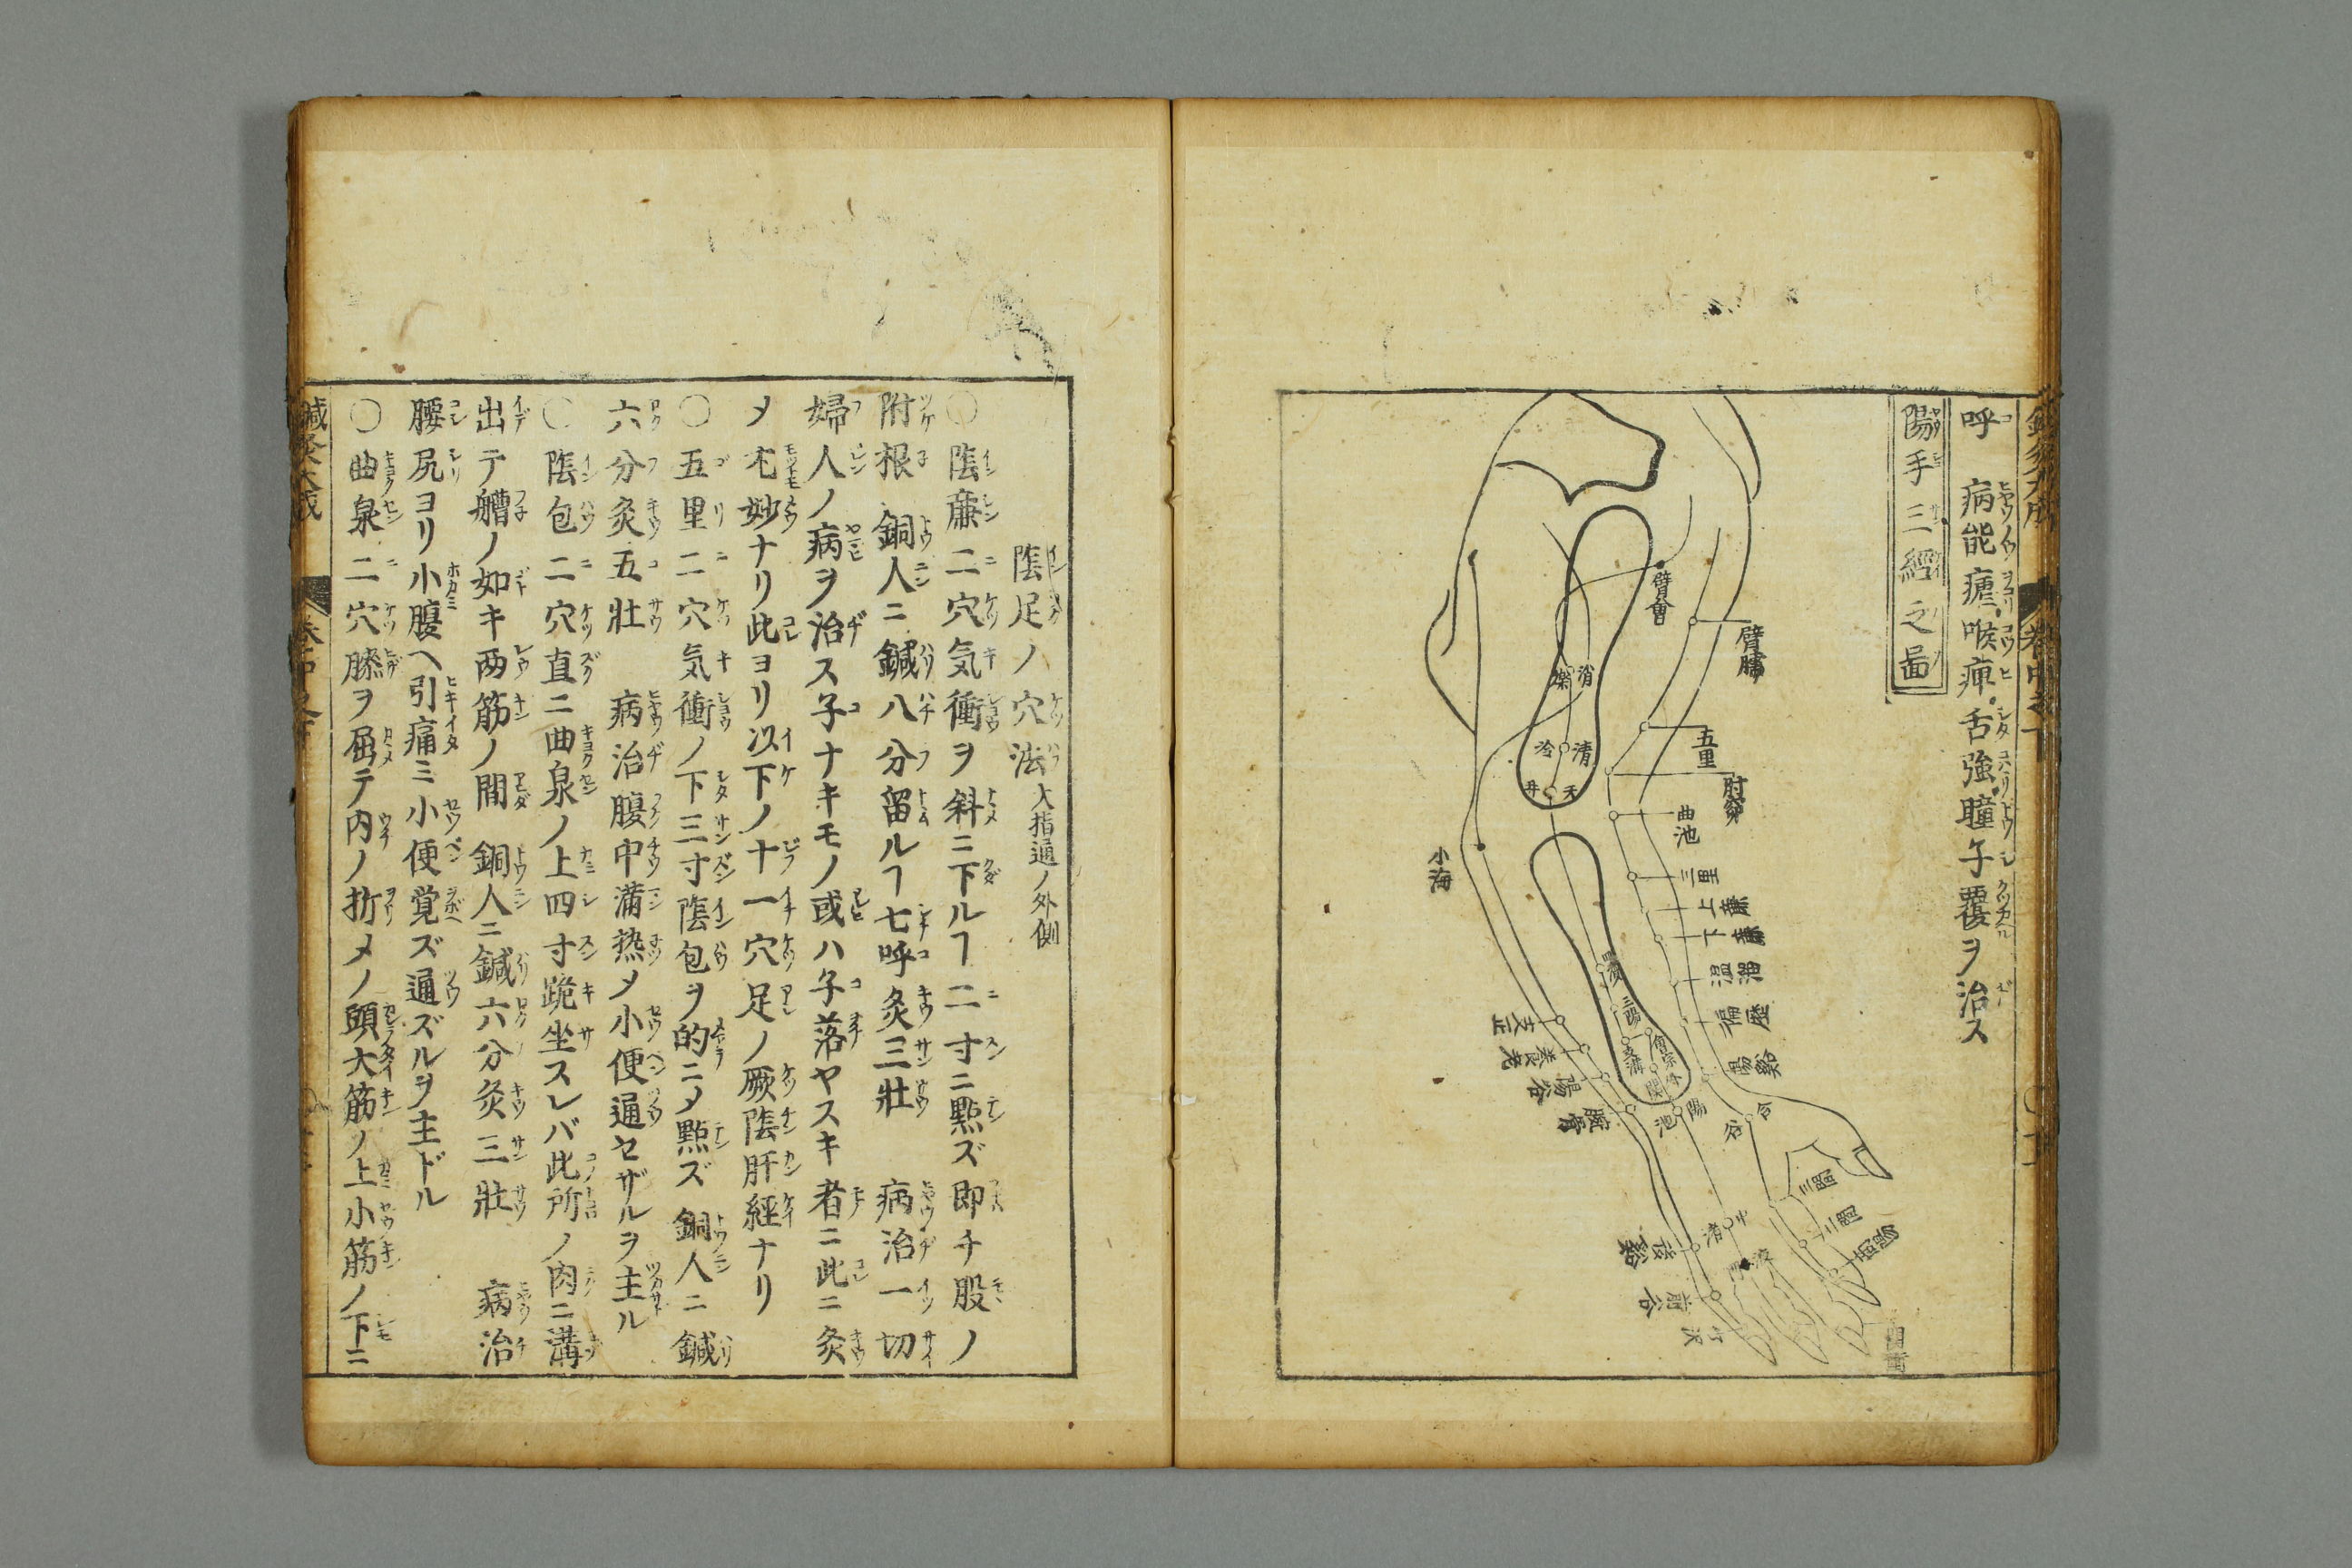 呼 病能瘧喉痺舌強瞳子覆ヲ治ス
陽手三經之啚
臂會
臂臑
消
濼
五里
清
冷
肘窌
天
井
曲池
小海
三里
上廉
下廉
温溜
偏歴
陽谿
合谷
支正
養老
陽谷
腕骨
陽池
三間
二間
後谿
前谷
陰足ノ穴法 大指通ノ外側
〇陰廉二穴気衝ヲ斜ニ下ルヿ二寸ニ㸃ズ即チ股ノ
附根 銅人ニ鍼八分留ルヿ七呼灸三壯 病治一切
婦人ノ病ヲ治ス子ナキモノ或ハ子落ヤスキ者ニ此ニ灸
〆尤妙ナリ此ヨリ以下ノ十一穴足ノ厥陰肝經ナリ
〇五里二穴気衝ノ下三寸陰包ヲ的ニ〆㸃ズ 銅人ニ鍼
六分灸五壯 病治腹中滿热〆小便通セザルヲ主ル
〇陰包二穴直ニ曲泉ノ上四寸跪坐スレバ此所ノ肉ニ溝
出テ艚ノ如キ两筋ノ間 銅人ニ鍼六分灸三壯 病治
腰尻ヨリ小腹ヘ引痛ミ小便覚ズ通ズルヲ主ドル
〇曲泉二穴膝ヲ屈テ内ノ折メノ頭大筋ノ上小筋ノ下ニ
鍼灸大成